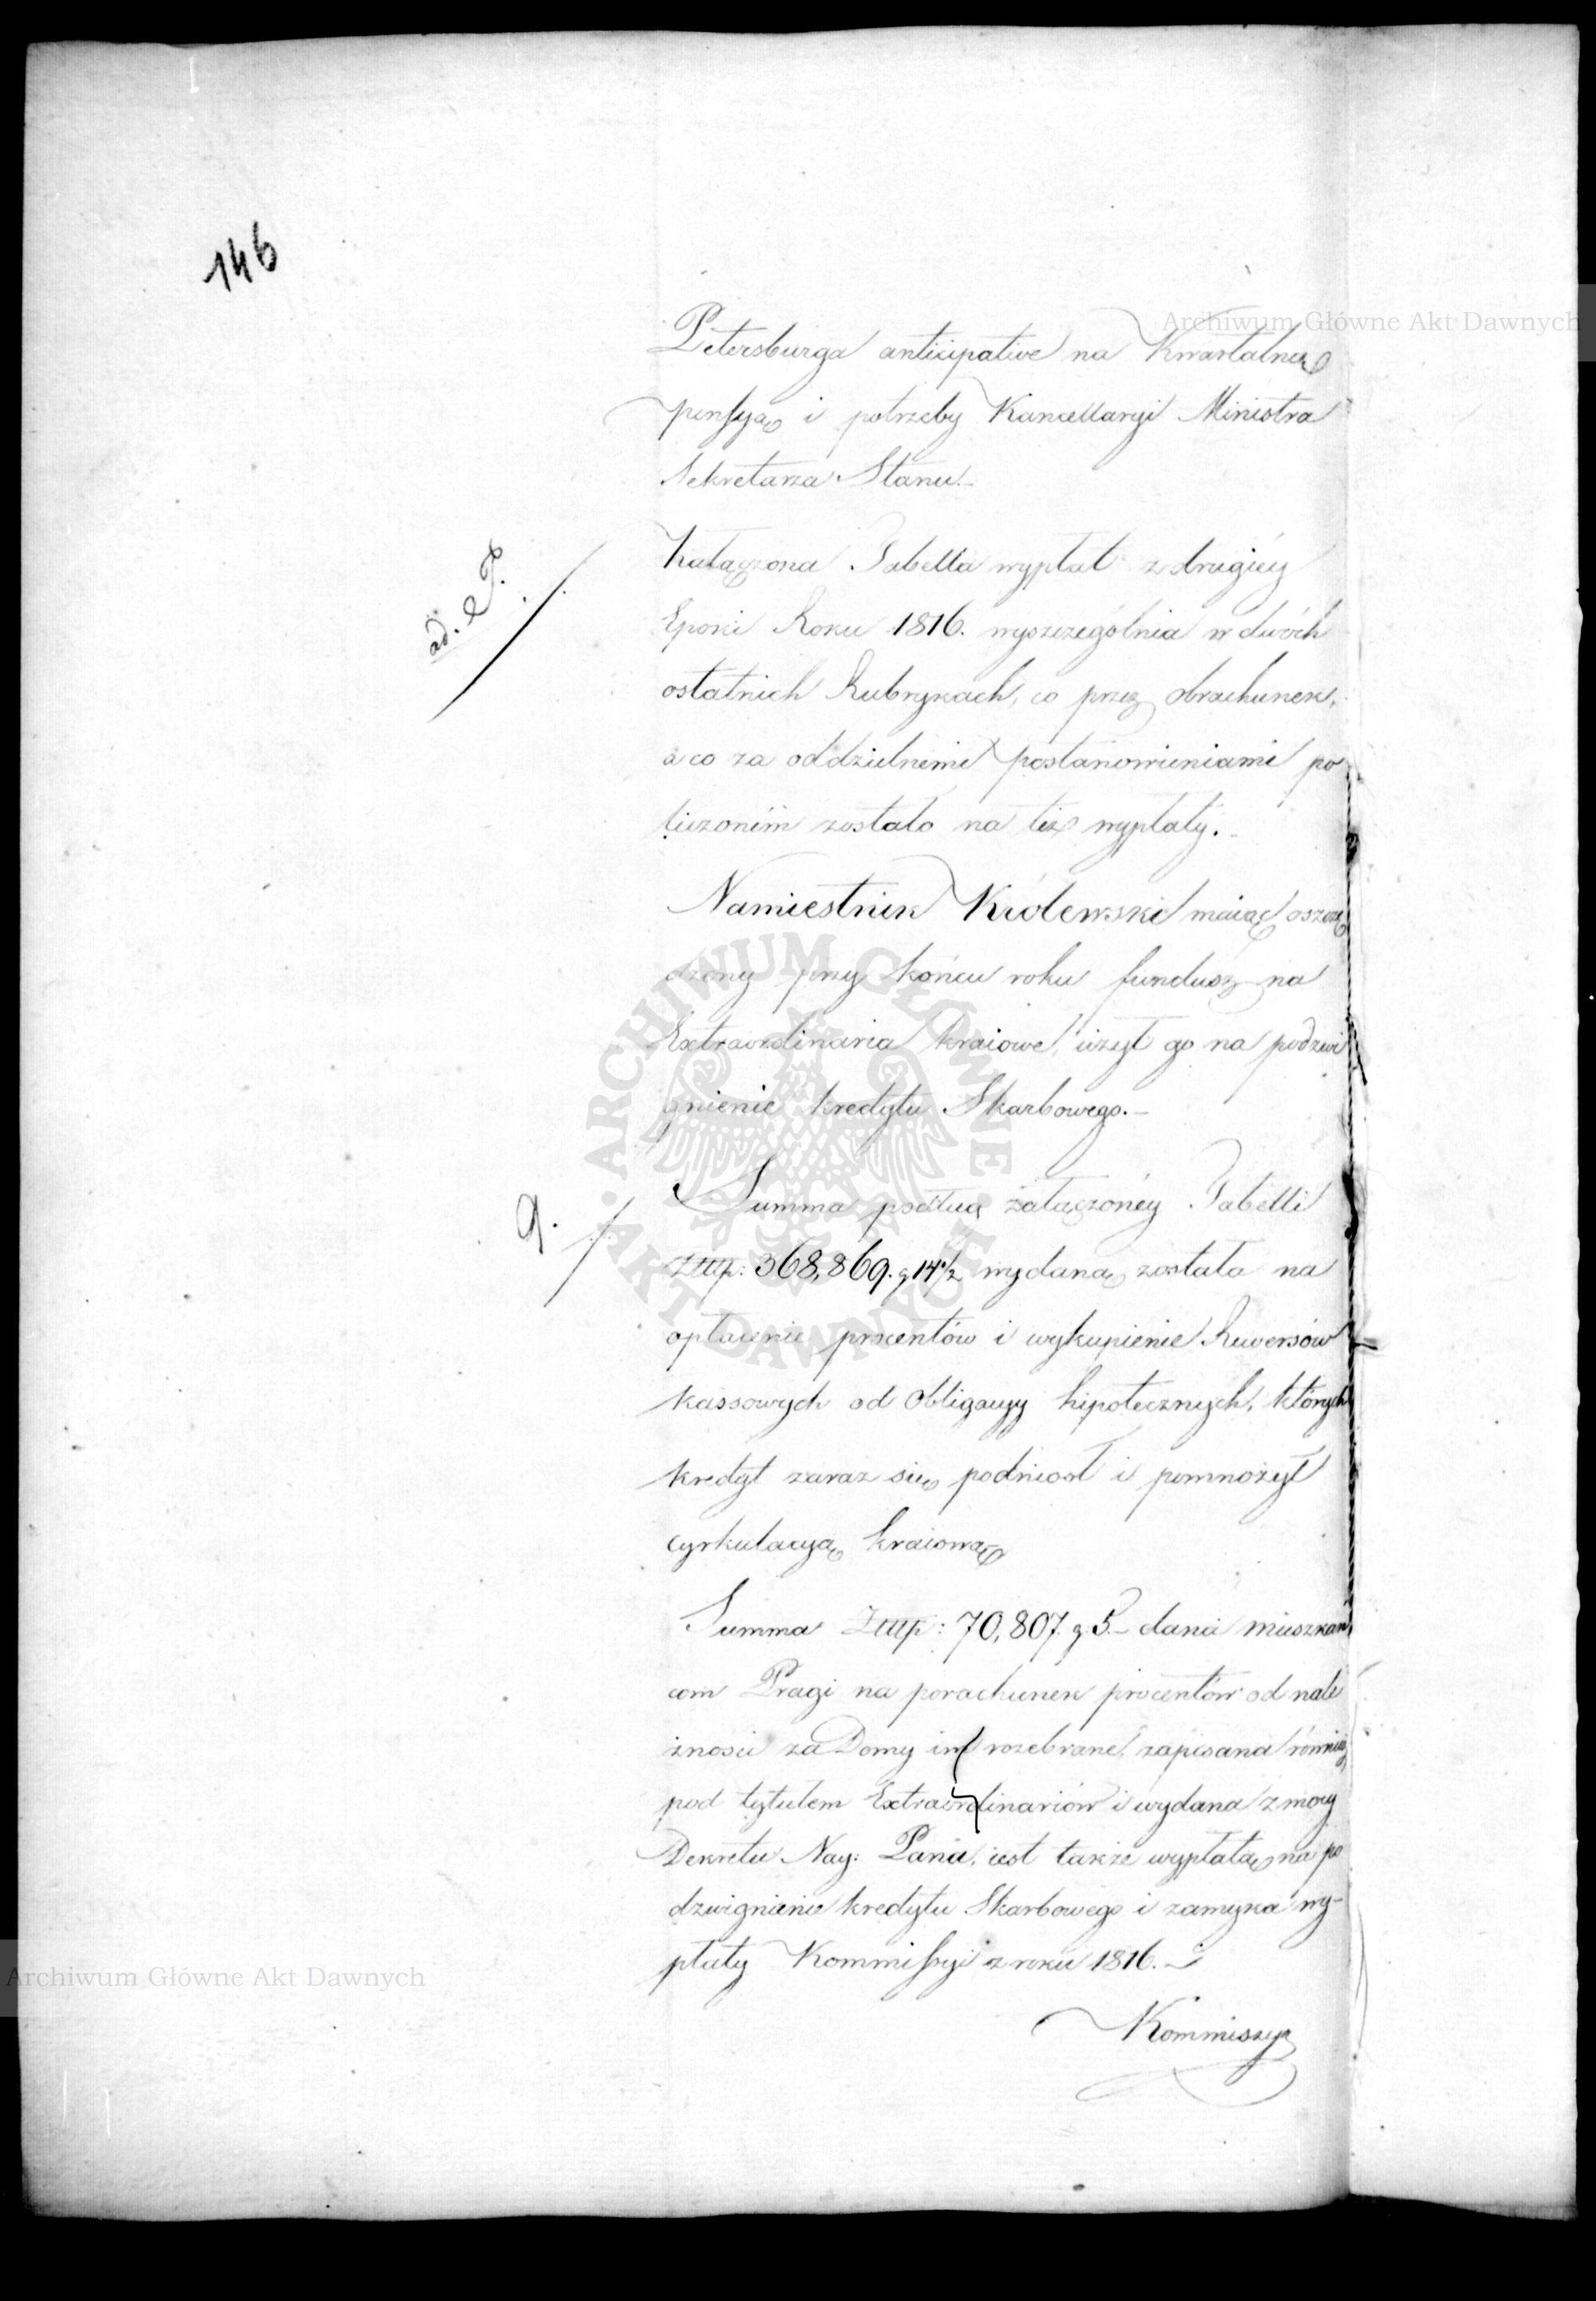 146
Archiwum Główne Akt Dawnych
Petersburga anticipative na Kwartalną
penſyą i potrzeby Kancellaryi Ministra
Sekretarza Stanu.-
ad. P.
Załączona Tabella wypłat z drugiéy
Epoki Roku 1816. wyszczególnia w dwóch
ostatnich Rubrykach, co przez obrachunek,
a co za oddzielnemi postanowieniami po
liczoném zostało na też wypłaty.-
Namiestnik Królewski maiąc oszczę
dzony przy końcu roku fundusz na
Extraordinaria kraiowe, użył go na podzwi
gnienie kredytu Skarbowego.-
q.
Summa podług załączonéy Tabelli
Złłłp: 368,869. g 14½ wydaną została na
opłacenie procentów i wykupienie Rewersów
kassowych od Obligacyy hipotecznych, których
kredyt zaraz się podniosł i pomnożył
cyrkulacyą kraiową
Summa Złłłp: 70,807. g 5.- dana mieszkań
com Pragi na porachunek procentów od nale
żności za Domy im rozebrane, zapisana równiéż
pod tytułem Extraordinariów i wydana z mocy
Dekretu Nay: Pana, iest także wypłatą na po
dzwignienie kredytu Skarbowego i zamyka wy-
płaty Kommiſsyi z roku 1816.-
Kommissya
Archiwum Główne Akt Dawnych
ARCHIWUM GŁÓWNE AKT DAWNYCH